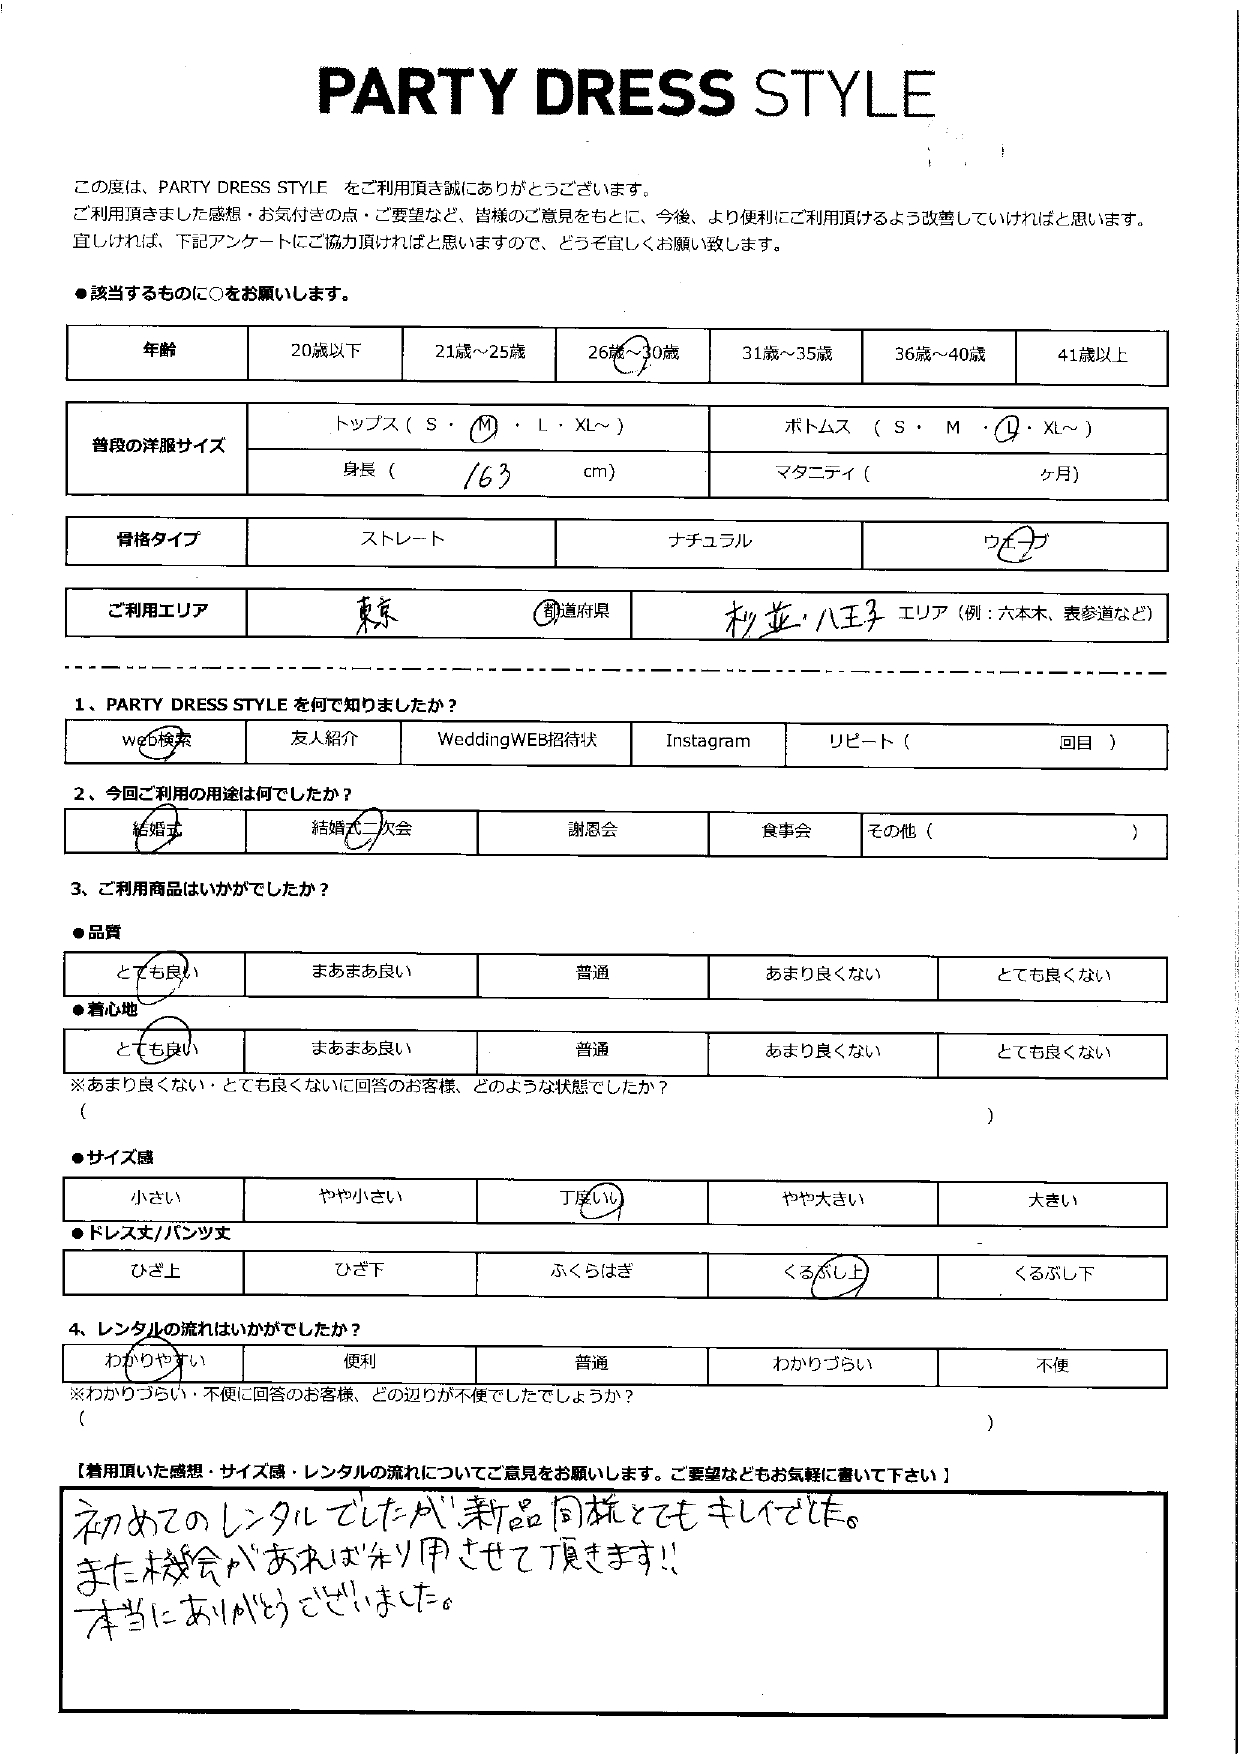 PARTY DRESS STYLE
この度は、PARTY DRESS STYLE をご利用頂き誠にありがとうございます。
ご利用頂きました感想・お気付きの点・ご要望など、皆様のご意見をもとに、今後、より便利にご利用頂けるよう改善していければと思います。
宜しければ、下記アンケートにご協力頂ければと思いますので、どうぞ宜しくお願い致します。
●該当するものに○をお願いします。
年齢 20歳以下 21歳～25歳 26歳～30歳 31歳～35歳 36歳～40歳 41歳以上
普段の洋服サイズ
トップス ( S ・ M ・ L ・ XL～ ) ボトムス ( S ・ M ・ L ・ XL～ )
身長 ( 163 cm) マタニティ ( ヶ月)
骨格タイプ ストレート ナチュラル ウェーブ
ご利用エリア 東京 都道府県 杉並・八王子 エリア（例：六本木、表参道など）
1、PARTY DRESS STYLE を何で知りましたか？
web検索 友人紹介 WeddingWEB招待状 Instagram リピート ( 回目 )
2、今回ご利用の用途は何でしたか？
結婚式 結婚式二次会 謝恩会 食事会 その他 ( )
3、ご利用商品はいかがでしたか？
●品質
とても良い まあまあ良い 普通 あまり良くない とても良くない
●着心地
とても良い まあまあ良い 普通 あまり良くない とても良くない
※あまり良くない・とても良くないに回答のお客様、どのような状態でしたか？
( )
●サイズ感
小さい やや小さい 丁度いい やや大きい 大きい
●ドレス丈/パンツ丈
ひざ上 ひざ下 ふくらはぎ くるぶし上 くるぶし下
4、レンタルの流れはいかがでしたか？
わかりやすい 便利 普通 わかりづらい 不便
※わかりづらい・不便に回答のお客様、どの辺りが不便でしたでしょうか？
( )
【着用頂いた感想・サイズ感・レンタルの流れについてご意見をお願いします。ご要望などもお気軽に書いて下さい】
初めてのレンタルでしたが、新品同様とてもキレイでした。
また機会があれば利用させて頂きます!!
本当にありがとうございました。